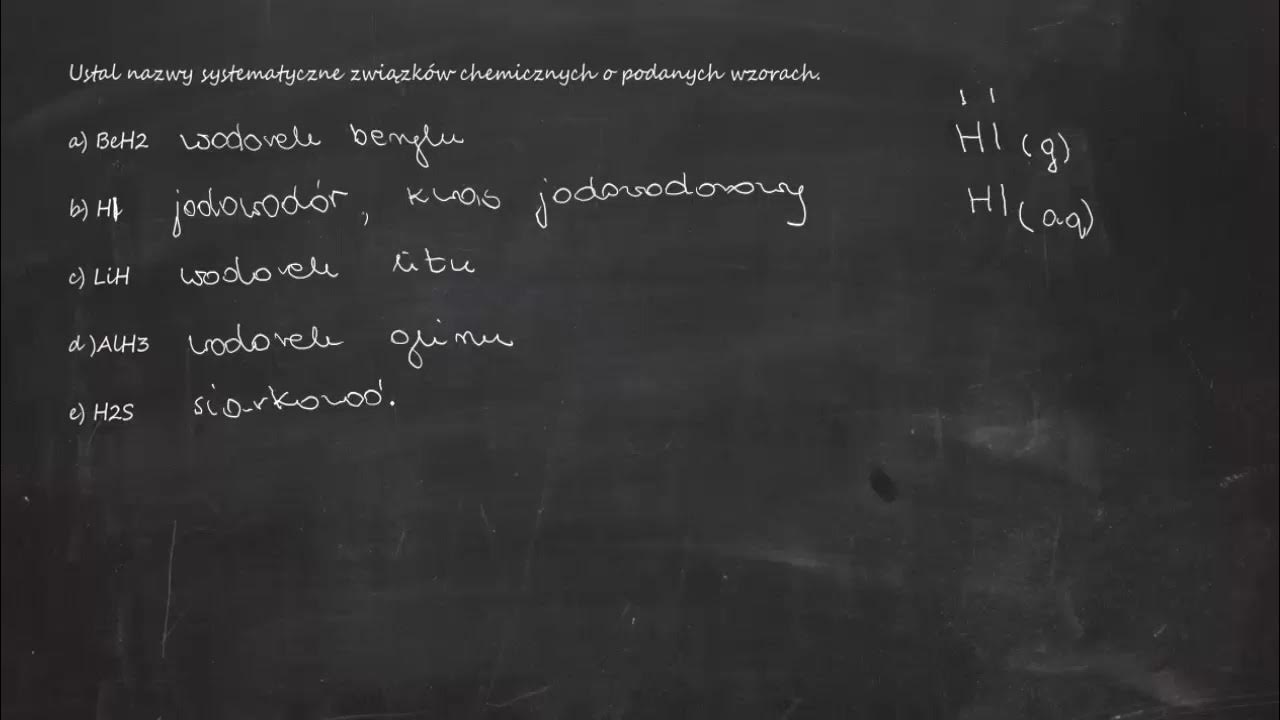 Ustal nazwy systematyczne związków chemicznych o podanych wzorach.
a) BeH2 wodorek berylu
b) HI jodowodór, kwas jodowodorowy
c) LiH wodorek litu
d) AlH3 wodorek glinu
e) H2S siarkowod.
I I
HI (g)
HI (aq)